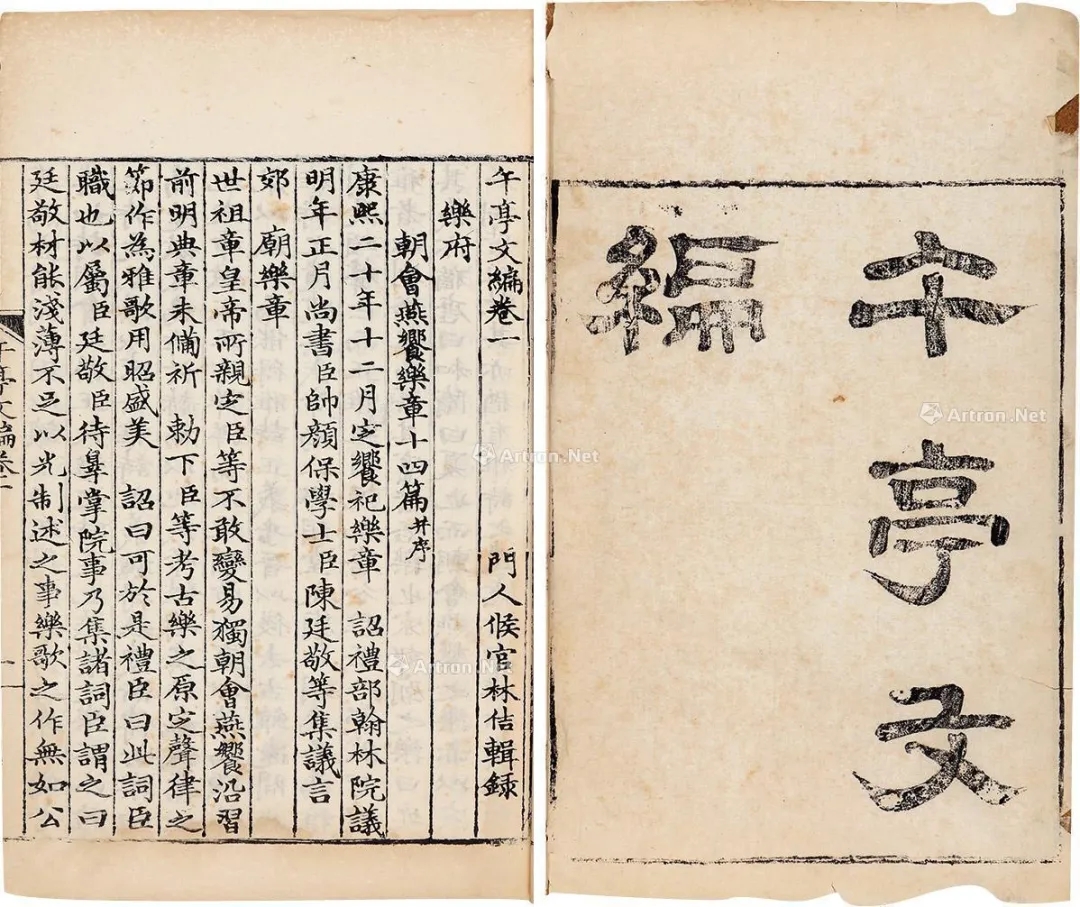 午亭文
編
午亭文編卷一 門人候官林佶輯録
樂府
朝會燕饗樂章十四篇并序
康熙二十年十二月定饗祀樂章 詔禮部翰林院議
明年正月尚書臣帥顔保學士臣陳廷敬等集議言
郊廟樂章
世祖章皇帝所親定臣等不敢變易獨朝會燕饗沿習
前明典章未備祈 勅下臣等考古樂之原定聲律之
節作為雅歌用昭盛美 詔曰可於是禮臣曰此詞臣
職也以屬臣廷敬臣待辠掌院事乃集諸詞臣謂之曰
廷敬材能淺薄不足以光制述之事樂歌之作無如公
午亭文編卷一
一
Artron.Net
Artron.Net
Artron.Net
Artron.Net